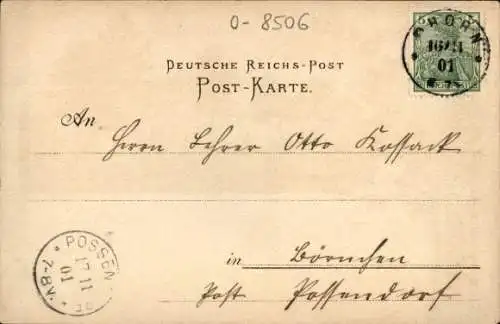 0-8506
THORN
16/11
01
DEUTSCHE REICHS-POST
POST-KARTE.
An
Herrn Lehrer Otto Kossack
in Börnchen
Post Possendorf
POSSEN
17 11
01
7-8N.